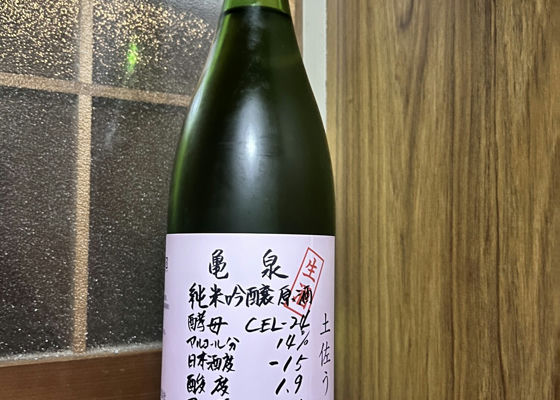 亀泉
生酒
純米吟醸原酒
酵母 CEL-24
アルコール分 14%
日本酒度 -15
酸度 1.9
土佐う